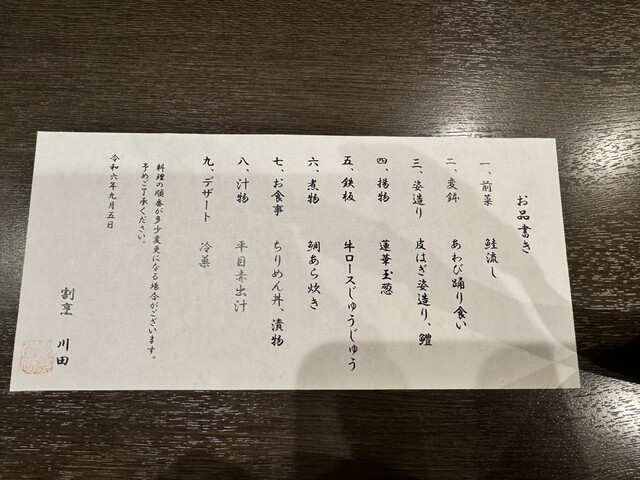 お品書き
一、前菜　鮭流し
二、変鉢　あわび踊り食い
三、姿造り　皮はぎ姿造り、鱧
四、揚物　蓮華玉葱
五、鉄板　牛ロースじゅうじゅう
六、煮物　鯛あら炊き
七、お食事　ちりめん丼、漬物
八、汁物　平目赤出汁
九、デザート　冷菓
料理の順番が多少変更になる場合がございます。
予めご了承ください。
令和六年九月五日
割烹　川田